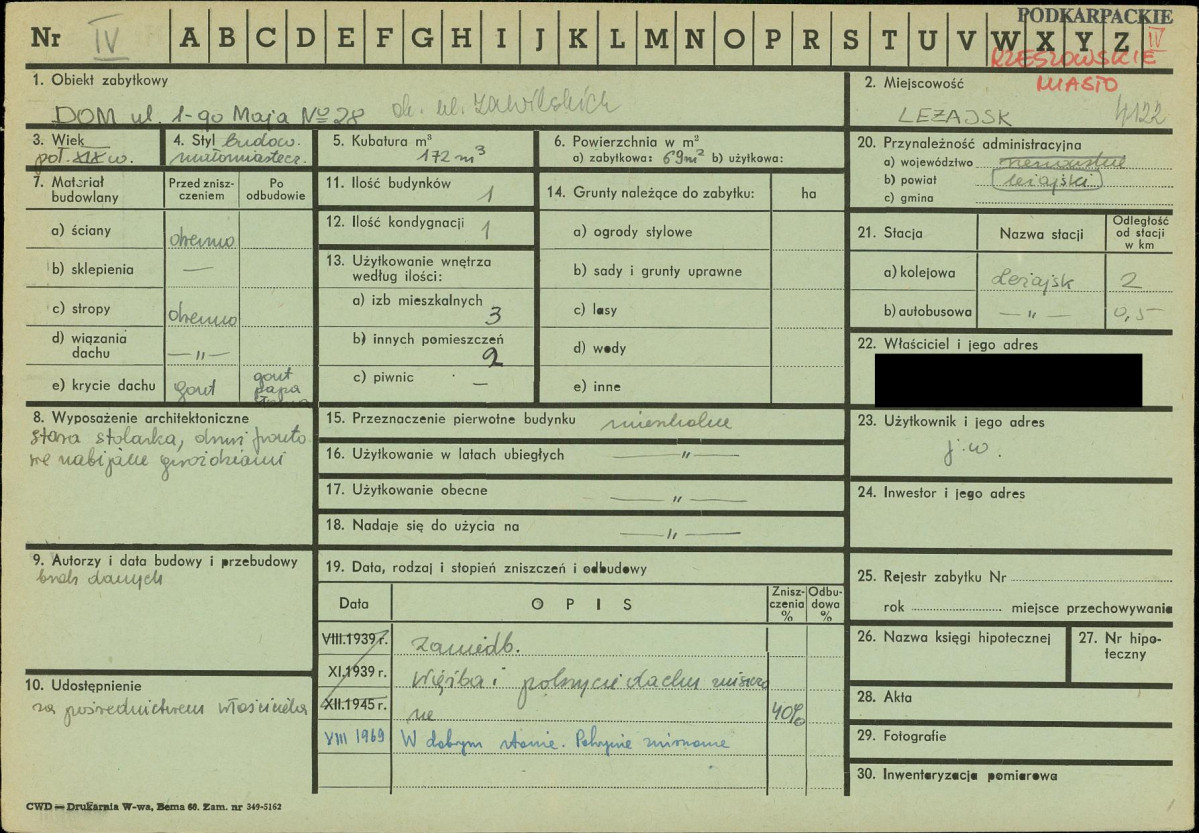 PODKARPACKIE
Nr IV A B C D E F G H I J K L M N O P R S T U V W X Y Z IV
RZESZOWSKIE
MIASTO
1. Obiekt zabytkowy
DOM ul. 1-go Maja No 28 ob. ul.
2. Miejscowość
LEŻAJSK 4122
3. Wiek
poł. XIX w.
4. Styl budow.
małomiastecz.
5. Kubatura m³
172 m³
6. Powierzchnia w m²
a) zabytkowa: 69m² b) użytkowa:
20. Przynależność administracyjna
a) województwo rzeszowskie
b) powiat leżajski
c) gmina
7. Materiał budowlany
Przed zniszczeniem
Po odbudowie
a) ściany drewno
b) sklepienia —
c) stropy drewno
d) wiązania dachu — „ —
e) krycie dachu gont gont papa
11. Ilość budynków 1
12. Ilość kondygnacji 1
13. Użytkowanie wnętrza według ilości:
a) izb mieszkalnych 3
b) innych pomieszczeń 2
c) piwnic —
14. Grunty należące do zabytku: ha
a) ogrody stylowe
b) sady i grunty uprawne
c) lasy
d) wody
e) inne
21. Stacja
Nazwa stacji
Odległość od stacji w km
a) kolejowa Leżajsk 2
b) autobusowa — „ — 0,5
22. Właściciel i jego adres
8. Wyposażenie architektoniczne
stara stolarka, drzwi fronto
we nabijane gwoździami
15. Przeznaczenie pierwotne budynku mieszkalne
16. Użytkowanie w latach ubiegłych — „ —
17. Użytkowanie obecne — „ —
18. Nadaje się do użycia na — „ —
23. Użytkownik i jego adres
j.w.
24. Inwestor i jego adres
9. Autorzy i data budowy i przebudowy
brak danych
19. Data, rodzaj i stopień zniszczeń i odbudowy
Data
OPIS
Zniszczenia %
Odbudowa %
VIII.1939 r. zaniedb.
XI.1939 r. więźba i pokrycie dachu zniszczo
XII.1945 r. ne 40%
VIII 1969 W dobrym stanie. Pokrycie zniszczone
25. Rejestr zabytku Nr
rok miejsce przechowywania
26. Nazwa księgi hipotecznej
27. Nr hipoteczny
10. Udostępnienie
za pośrednictwem właściciela
28. Akta
29. Fotografie
30. Inwentaryzacja pomiarowa
CWD — Drukarnia W-wa, Bema 60. Zam. nr 349-5162